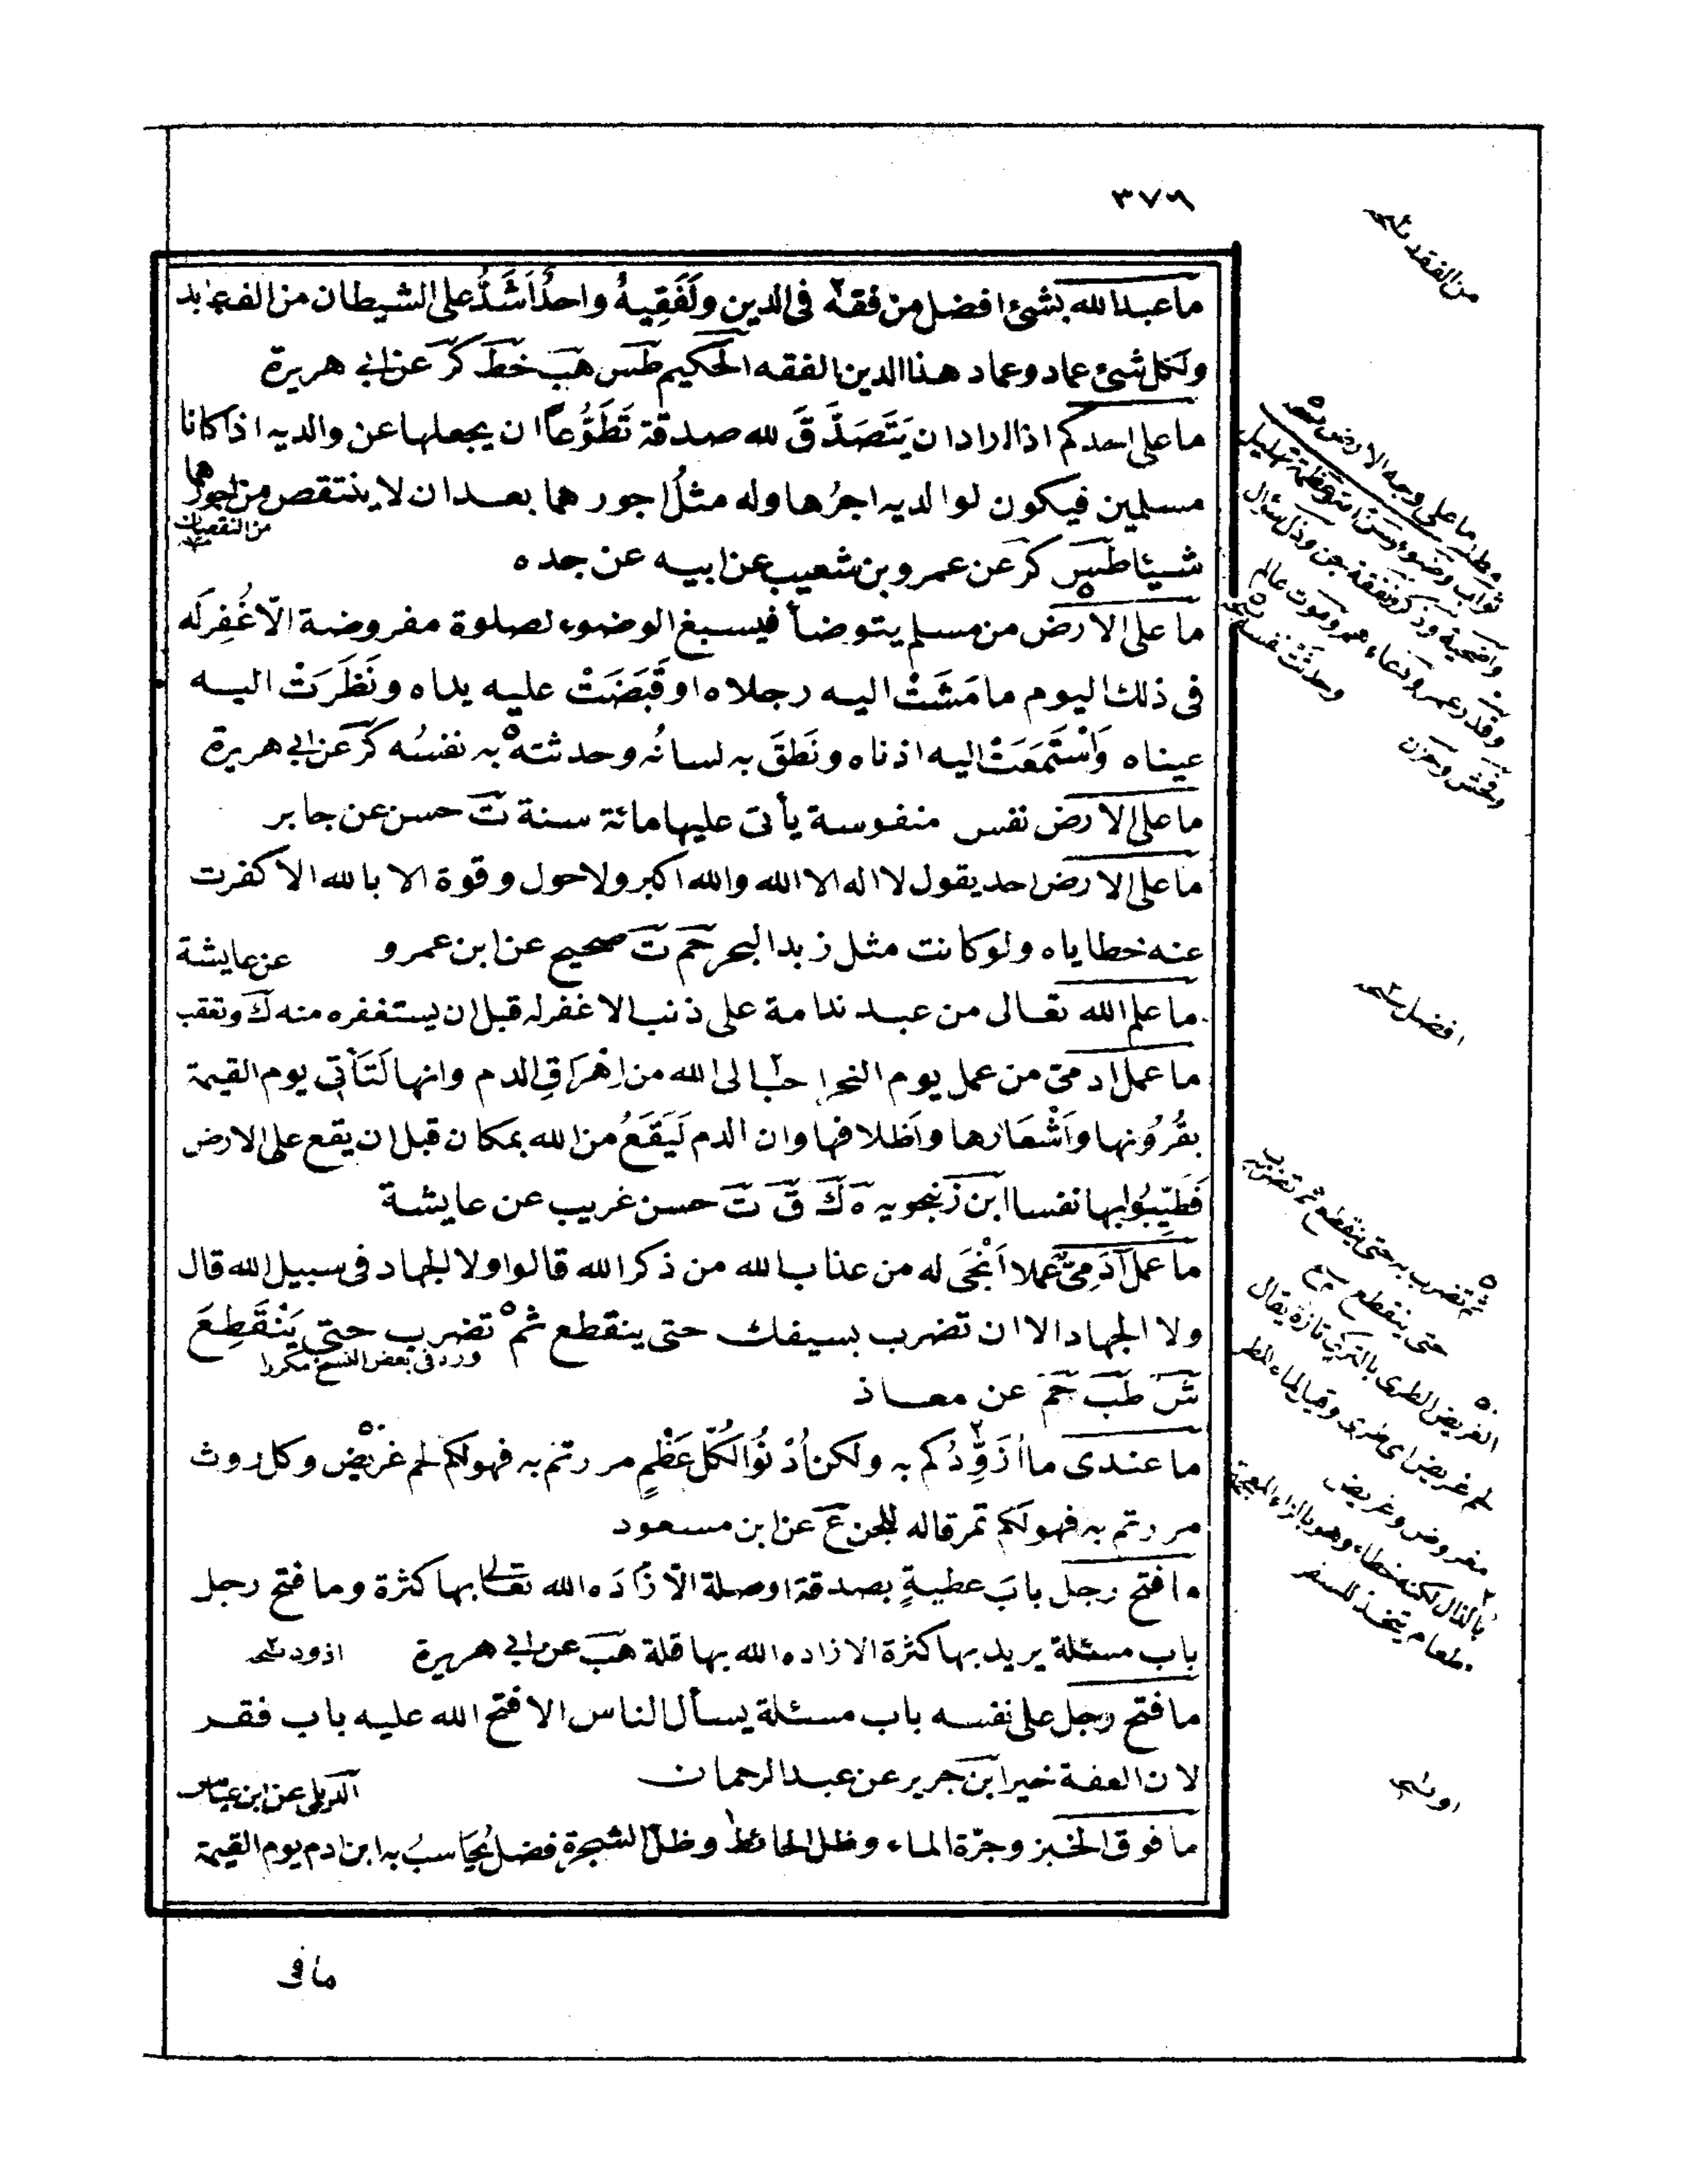 ٣٧٦
من الفقه نسخه
ما عبد الله بشئ افضل من فقه فى الدين ولَفَقِيهٌ واحدٌ اَشَدُّ على الشيطان من الف عابد
ولكل شئ عماد وعماد هذا الدين الفقه الحكيم طس هب خط كر عن ابى هريرة
ما على احدكم اذا اراد ان يَتَصَدَّقَ لله صدقة تَطَوُّعاً ان يجعلها عن والديه اذا كانا
مسلمين فيكون لوالديه اجرُها وله مثلُ اجورهما بعد ان لا ينتقص من اجورهما
من النقصان
شيئا طس كر عن عمرو بن شعيب عن ابيه عن جده
ما على الارض من مسلم يتوضأ فيسبغ الوضوء لصلوة مفروضة الّا غُفِرَ له
فى ذلك اليوم ما مَشَتْ اليه رجلاه او قَبَضَتْ عليه يداه ونَظَرَتْ اليه
عيناه وَاسْتَمَعَتْ اليه اذناه ونَطَقَ به لسانُه وحدثته به نفسُه كر عن ابى هريرة
ما على الارض نفس منفوسة يأتى عليها مائة سنة ت حسن عن جابر
ما على الارض احد يقول لا اله الا الله والله اكبر ولا حول وقوة الا بالله الا كفرت
عنه خطاياه ولو كانت مثل زبد البحر حم ت صحيح عن ابن عمرو
عن عايشة
ما علم الله تعالى من عبد ندامة على ذنب الا غفر له قبل ان يستغفره منه ك وتعقب
افضل نسخه
ما عمل ادمى من عمل يوم النحر احب الى الله من اِهْرَاقِ الدم وانها لَتَأتى يوم القيمة
بقُرُونها واَشْعَارها واَظلافها وان الدم لَيَقَعُ من الله بمكان قبل ان يقع على الارض
فَطَيِّبُوا بها نفسا ابن زنجويه ه ك ق ت حسن غريب عن عايشة
ما عمل آدَمِىٌّ عملا اَنْجَى له من عذاب الله من ذكر الله قالوا ولا الجهاد فى سبيل الله قال
ولا الجهاد الا ان تضرب بسيفك حتى ينقطع ثم تضرب حتى يَنْقَطِعَ
ورد فى بعض النسخ مكررا
ش طب حم عن معاذ
ما عندى ما اُزَوِّدُكم به ولكن اُدْنُوا لكُلّ عَظْمٍ مررتم به فهو لكم لحم غريض وكل روث
مررتم به فهو لكم تمر قاله للجن ع عن ابن مسعود
ما فتح رجل بابَ عطيةٍ بصدقة او صلة الّا زَادَه الله تعالى بها كثرة وما فتح رجل
باب مسئلة يريد بها كثرة الا زاده الله بها قلة هب عن ابى هريرة
ما فتح رجل على نفسه باب مسئلة يسأل الناس الا فتح الله عليه باب فقر
لان العفة خير ابن جرير عن عبد الرحمان
الديلى عن ابن عباس
ما فوق الخبز وجرّة الماء وظل الحائط وظلّ الشجرة فضلٌ يُحَاسبُ به ابن ادم يوم القيمة
ثم تضرب به حتى ينقطع ثم تضرب به
حتى ينقطع
الغريض الطرى بالتركى تازه يقال
لحم غريض اى طرى ويقال لماء المطر
مغروض وغريض
بالذال لكنه خطاء وهو بالزاء المعجمة
طعام يتخذ للسفر
ما فى